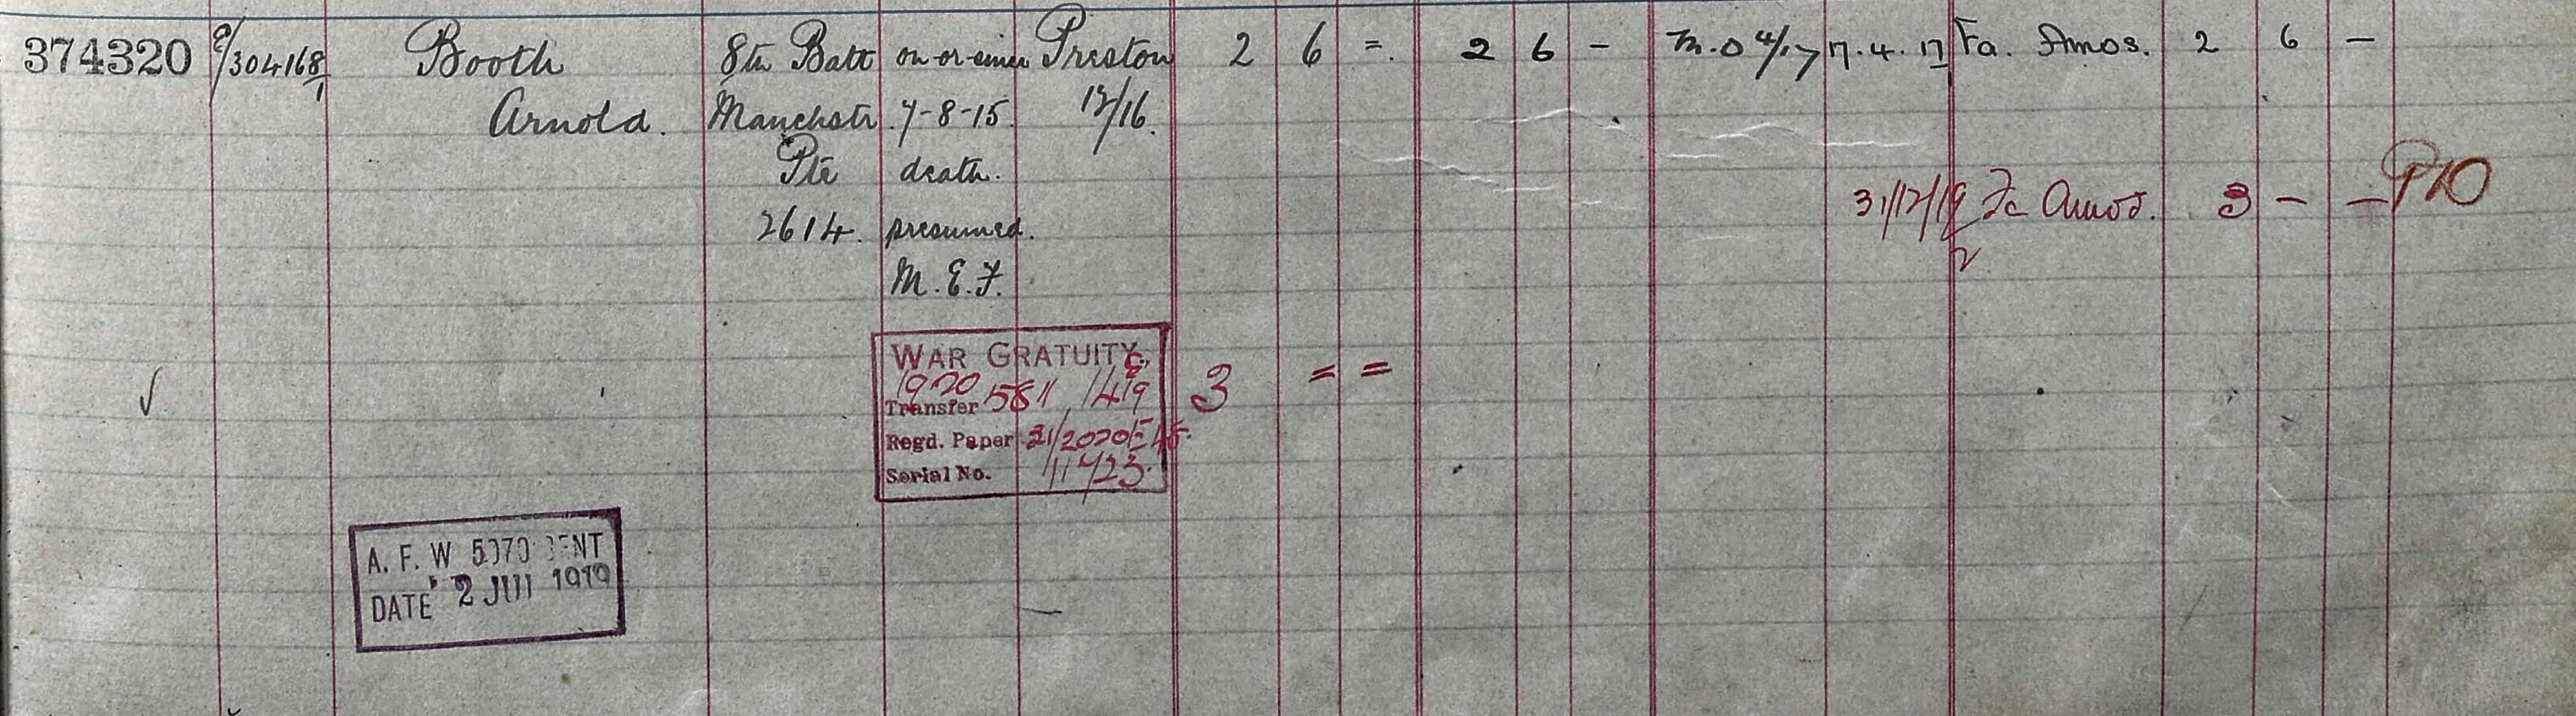 374320 E/304168/1 Booth 8th Batt on-or-since Preston 2 6 = . 2 6 - M.O 4/17 17.4.17 Fa. Amos. 2 6 -
Arnold. Manchstr 7-8-15 12/16.
Pte death.
31/12/19 Fa Amos. 3 - -
2614. presumed.
M.E.F.
WAR GRATUITY
1920
Transfer 1581 3 = =
Regd. Paper 21/2020/E
Serial No. 11723.
A. F. W 5070 SENT
DATE 2 JUL 1919